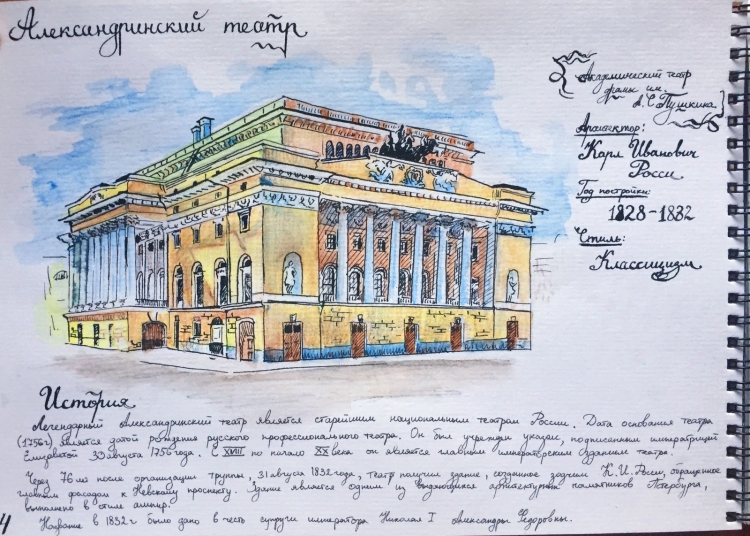 Александринский театр
Академический театр
драмы им.
А.С.Пушкина
Архитектор:
Карл Иванович
Росси
Год постройки:
1828-1832
Стиль:
Классицизм
История
Легендарный Александринский театр является старейшим национальным театром России. Дата основания театра
(1756г) является датой рождения русского профессионального театра. Он был учрежден указом, подписанным императрицей
Елизаветой 30 августа 1756 года. С XVIII по начало XX века он является главным императорским театром.
Через 76 лет после организации труппы, 31 августа 1832 года, театр получил здание, созданное зодчим К.И.Росси, обращенное
главным фасадом к Невскому проспекту. Здание является одним из выдающихся архитектурных памятников Петербурга,
выполнено в стиле ампир.
Название в 1832г было дано в честь супруги императора Николая I Александры Федоровны.
4